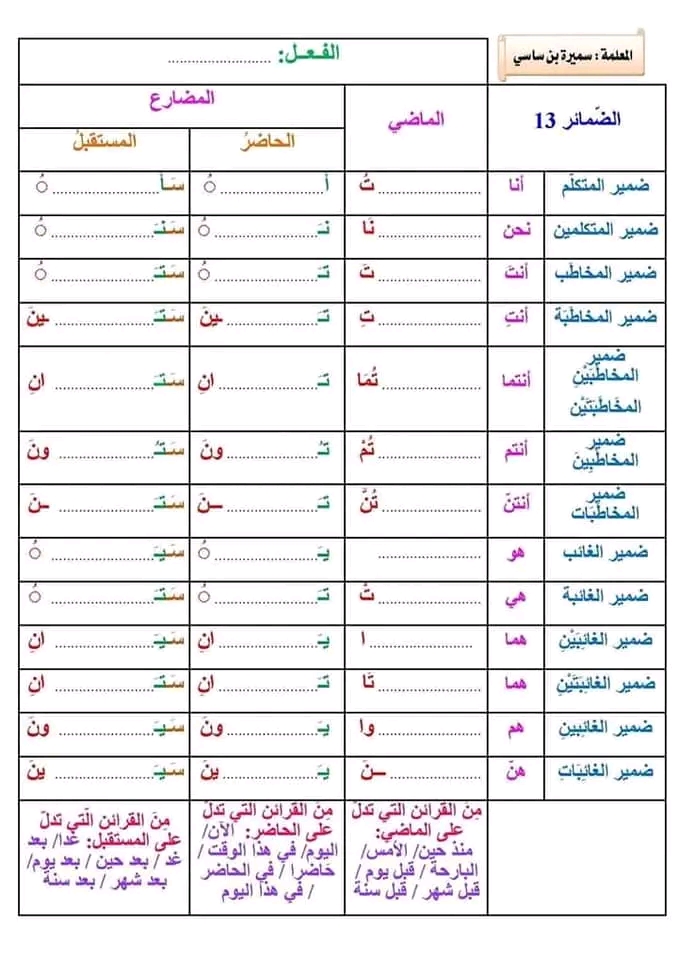 المعلمة : سميرة بن ساسي
الفـعـل: ..........................
الضّمائر 13 الماضي المضارع
الحاضرُ المستقبلُ
ضمير المتكلّم أنا ..........................تُ أ..........................ُ سَـأ..........................ُ
ضمير المتكلمين نحن ..........................نَا نَـ..........................ُ سَـنَـ..........................ُ
ضمير المخاطَب أنتَ ..........................تَ تَـ..........................ُ سَـتَـ..........................ُ
ضمير المخاطَبَة أنتِ ..........................تِ تَـ..........................ـينَ سَـتَـ..........................ـينَ
ضمير المخاطَبَيْنِ
المخَاطَبَتَيْن أنتما ..........................تُمَا تَـ..........................انِ سَـتَـ..........................انِ
ضمير المخاطَبِينَ أنتم ..........................تُمْ تَـ..........................ونَ سَـتَـ..........................ونَ
ضمير المخاطَبَات أنتنّ ..........................تُنَّ تَـ..........................ـــنَ سَـتَـ..........................ـنَ
ضمير الغائب هو .......................... يَـ..........................ُ سَـيَـ..........................ُ
ضمير الغائبة هي ..........................تْ تَـ..........................ُ سَـتَـ..........................ُ
ضمير الغائِبَيْنِ هما ..........................ا يَـ..........................انِ سَـيَـ..........................انِ
ضمير الغائِبَتَيْنِ هما ..........................تَا تَـ..........................انِ سَـتَـ..........................انِ
ضمير الغائِبينِ هم ..........................وا يَـ..........................ونَ سَـيَـ..........................ونَ
ضمير الغائِبَاتِ هنّ ..........................ـــنَ يَـ..........................ينَ سَـيَـ..........................ينَ
مِنَ القرائن التي تدلّ
على الماضي:
منذ حين/ الأمس/
البارحة / قبل يوم /
قبل شهر / قبل سنة
مِنَ القرائن التي تدلّ
على الحاضر: الآن/
اليوم/ في هذا الوقت /
حَاضرا / في الحاضر
/ في هذا اليوم
مِنَ القرائن الّتي تدلّ
على المستقبل: غدا/ بعد
غد / بعد حين / بعد يوم/
بعد شهر / بعد سنة